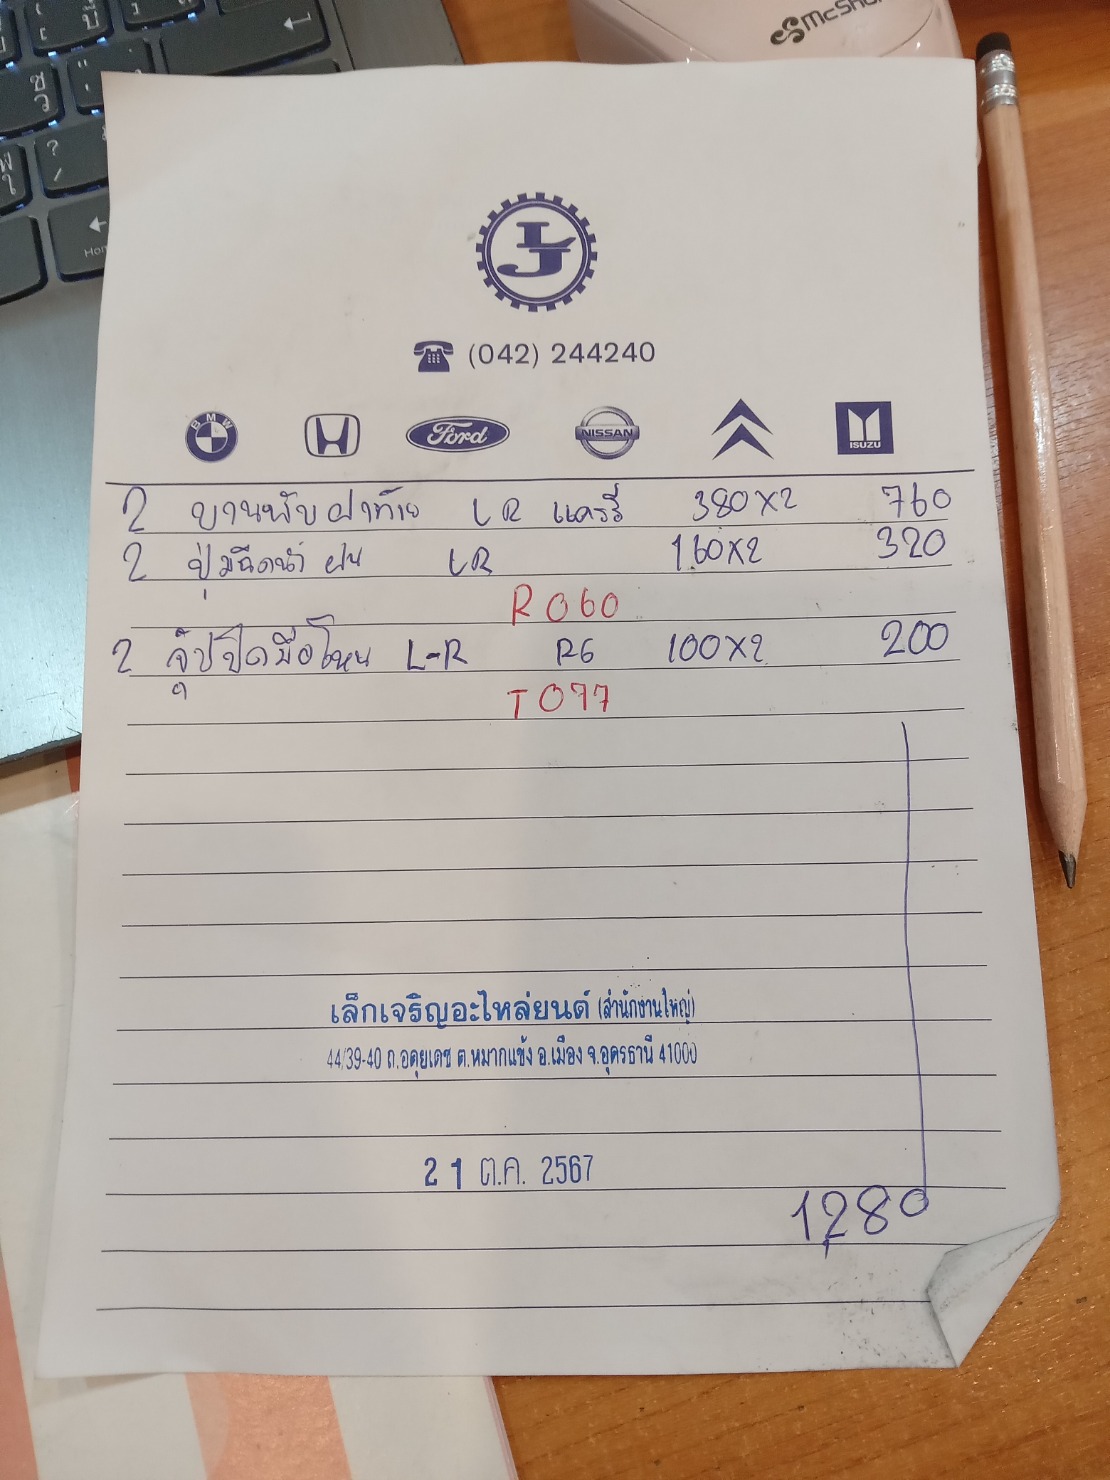 McSho
LJ
(042) 244240
BMW Ford NISSAN ISUZU
2 บานพับฝาท้าย LR แครรี่ 380x2 760
2 ปุ่มฉีดน้ำ ฝน LR 160x2 320
R060
2 จุ๊ปปิดมือโหน L-R R6 100x2 200
T077
เล็กเจริญอะไหล่ยนต์ (สำนักงานใหญ่)
44/39-40 ถ.อดุยเดช ต.หมากแข้ง อ.เมือง จ.อุดรธานี 41000
21 ต.ค. 2567
1,280